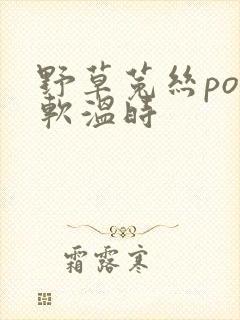 野草菟絲po
軟溫時
霜露寒